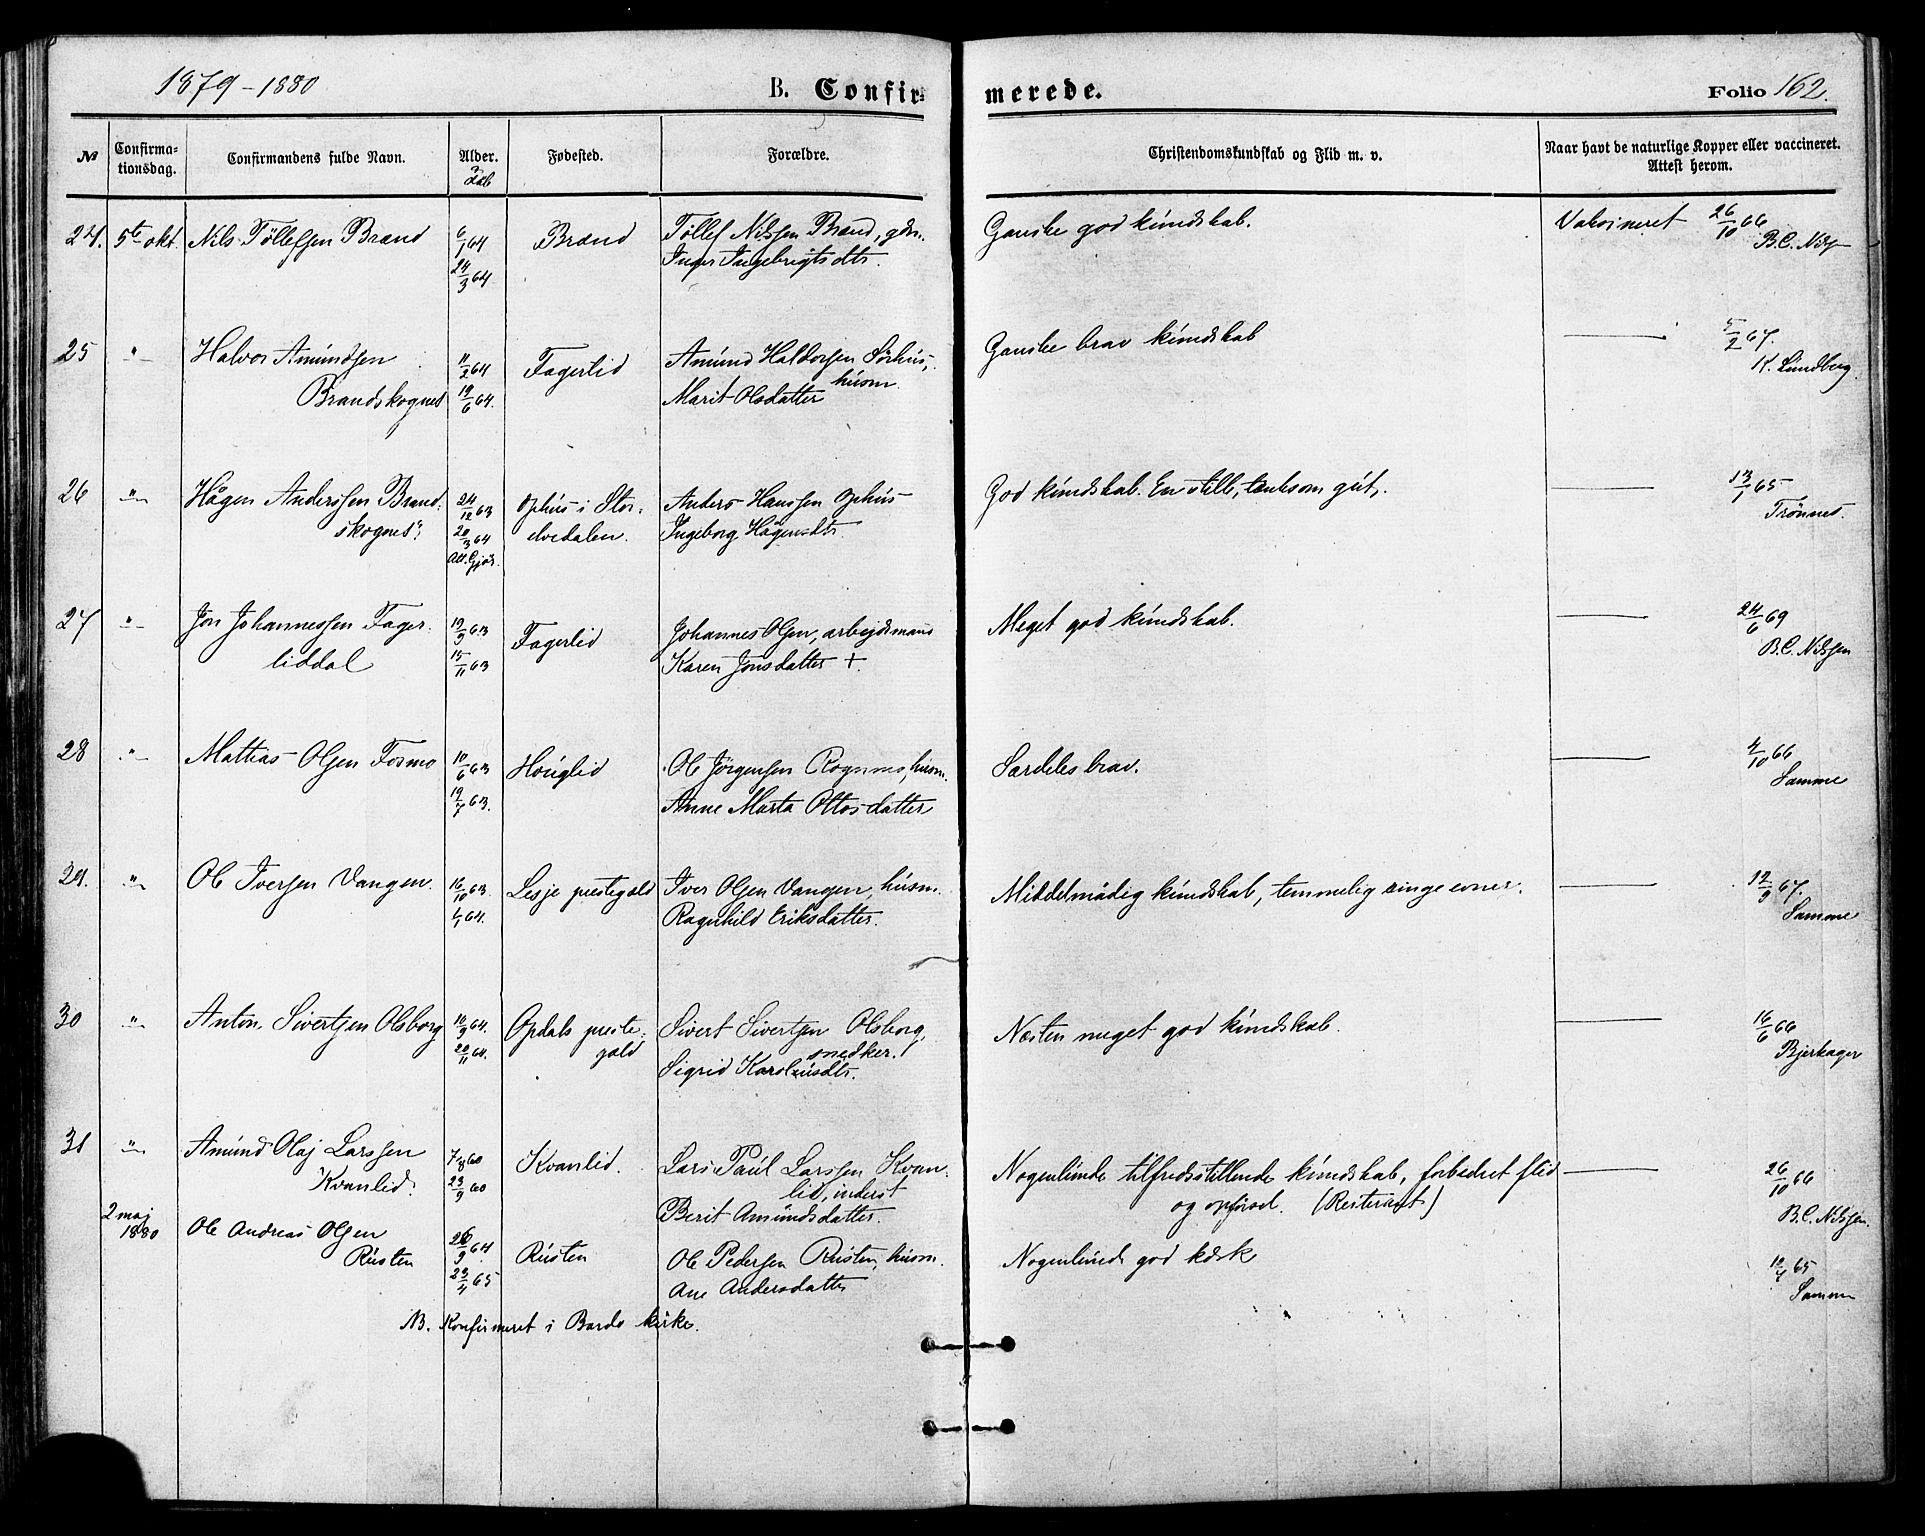 1879-1880 B. Confirmerede. Folio 162.
№ Confirmationsdag. Confirmandens fulde Navn. Alder. Fødested. Forældre. Christendomskundskab og Flid m. v. Naar havt de naturlige Kopper eller vaccineret. Attest herom.
dåb
24. 5te okt. Nils Töllefsen Brænd 6/1 64 Brænd Töllef Nilssen Brænd, gdr. Ganske god kundskab. Vaksineret 26/10 66
24/3 64 Inger Ingebrigtsdtr. B.C. Nils
25 " Halvor Amundsen 11/2 64 Fagerlid Amund Haldorsen Sörhus, Ganske brav kundskab 5/2 67.
Brandskognes 19/6 64. Marit Olsdatter husm. K. Lundberg.
26 " Hågen Anderssen Brand- 24/12 63 Ophus i Stor- Anders Hanssen Ophus God kundskab. En stille, tænksom gut. 13/1 65
skognes 20/3 64 elvedalen. Ingeborg Hågensdtr. Trönnes.
Att. Gjör.
27 " Jon Johannessen Fager- 19/9 63 Fagerlid Johannes Olsen, arbejdsmand Meget god kundskab. 24/6 69
liddal 15/11 63 Karen Jonsdatter + B.C. Nilssen
28 " Mattias Olsen Formo 10/6 63 Houglid Ole Jörgensen Rognmo, husm. Særdeles brav. 4/10 66
19/7 63. Anne Marta Ottosdatter Samme
29. " Ole Iversen Vangen. 16/10 63. Lesje prestegæld Iver Olsen Vangen, husm. Middelmådig kundskab, temmelig ringe evner. 12/9 67.
1/1 64. Ragnhild Eriksdatter. Samme
30 " Anton Sivertsen Olsborg 10/9 64. Opdals preste- Sivert Sivertsen Olsborg, Næsten meget god kundskab. 16/6 66
20/11 64. gæld snedker. Bjerkager
Sigrid Karolusdtr.
31 " Amund Olaj Larssen 7/8 60 Kvanlid. Lars Paul Larssen Kvan- Nogenlunde tilfredsstillende kundskab, forbedret flid 26/10 66
Kvanlid. 23/9 60 lid, inderst og opförsel. (Resterant)
Berit Amundsdatter. B.C. Nilssen.
2 maj
1880 Ole Andreas Olsen 26/9 64. Rusten Ole Pedersen Rusten, husm. Nogenlunde god kdsk 12/7 65
Rusten 23/4 65 Ane Andersdatter Samme
NB. Konfirmeret i Bardo kirke.